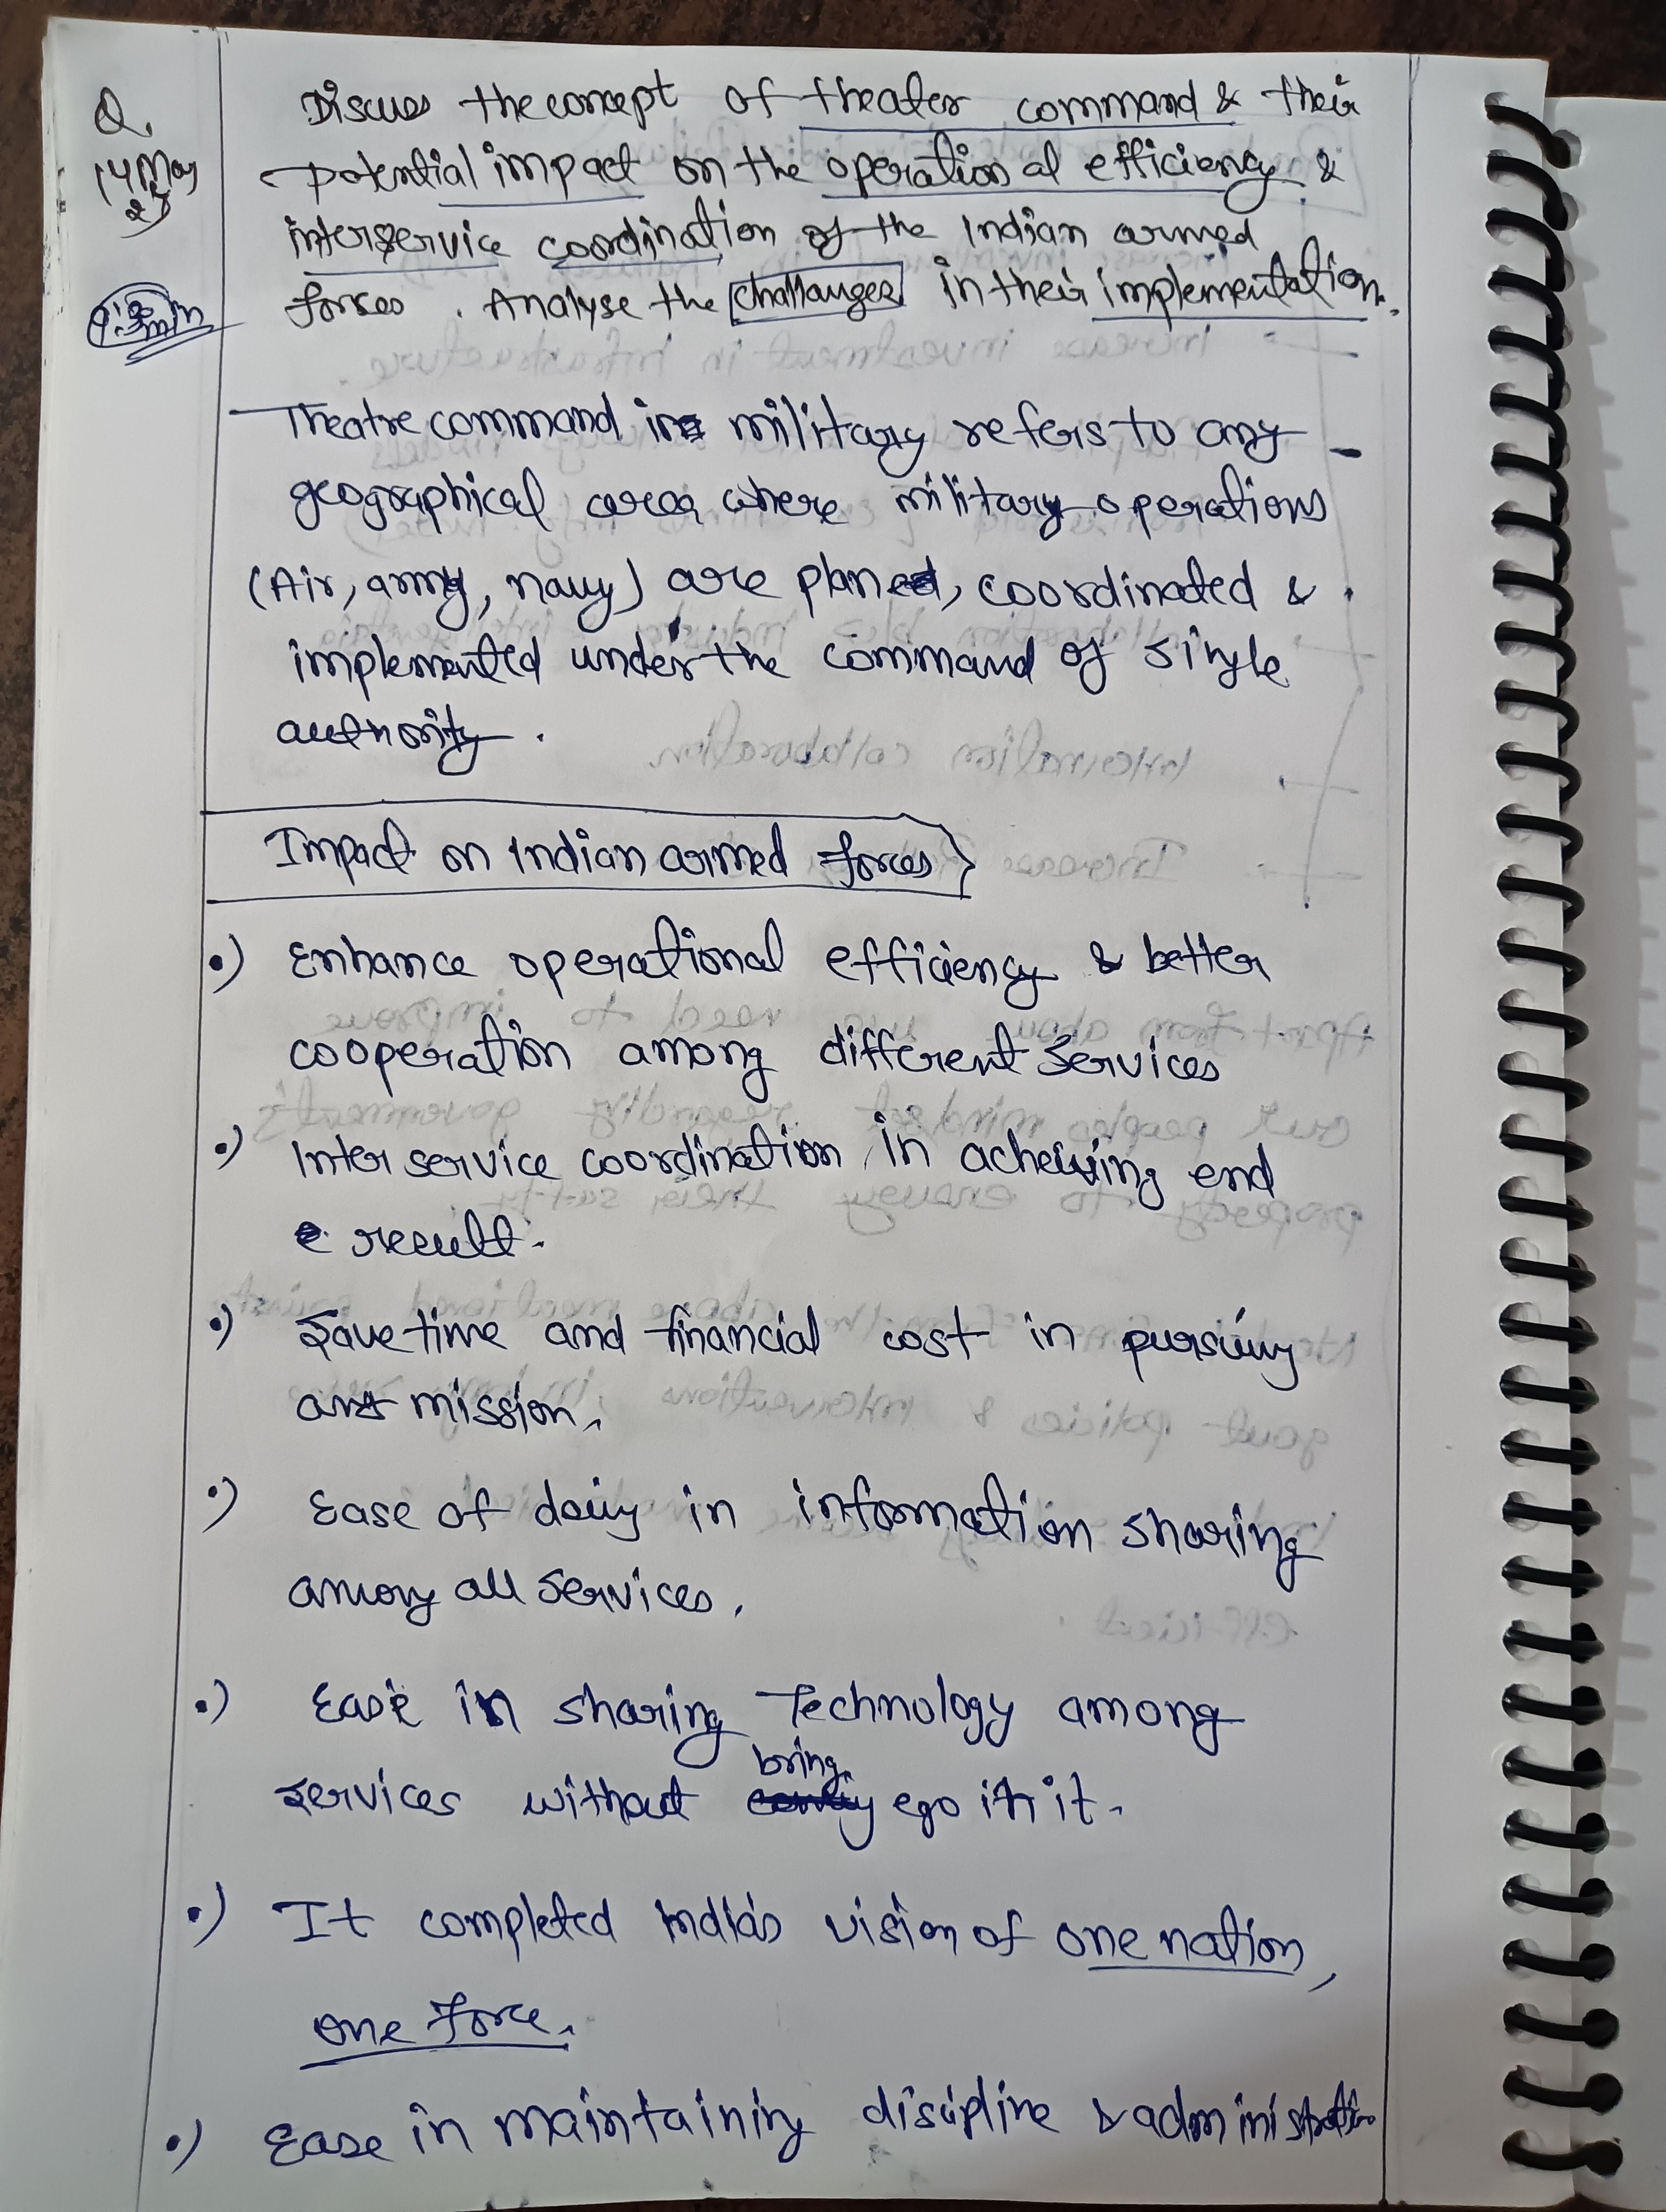 Q.
Discuss the concept of theater command & their
14 May
potential impact on the operational efficiency &
interservice coordination of the Indian armed
forses. Analyse the challanges in their implementation.
Theatre command in military refers to any
geographical area where military operations
(Air, army, navy) are planed, coordinated &
implemented under the command of single
authority.
Impact on Indian armed forces
•) Enhance operational efficiency & better
cooperation among different services
•) Inter service coordination in acheiving end
result.
•) Save time and financial cost in pursuing
mission.
•) Ease of doing in information sharing
among all services.
•) Ease in sharing Technology among
services without bring ego in it.
•) It completed India's vision of one nation,
one force.
•) Ease in maintaining discipline & administration